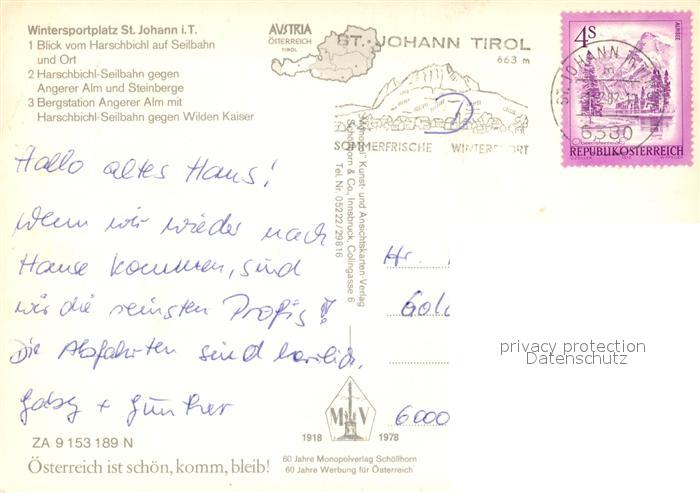 Wintersportplatz St. Johann i.T.
1 Blick vom Harschbichl auf Seilbahn
und Ort
2 Harschbichl-Seilbahn gegen
Angerer Alm und Steinberge
3 Bergstation Angerer Alm mit
Harschbichl-Seilbahn gegen Wilden Kaiser
AUSTRIA
ÖSTERREICH
TIROL
ST. JOHANN TIROL
663 m
SOMMERFRISCHE WINTERSPORT
4S
ALMSEE
ST. JOHANN IN T
6380
REPUBLIK ÖSTERREICH
Hallo altes Haus!
Wenn wir wieder nach
Hause kommen, sind
wir die reinsten Profis!
Die Abfahrten sind herrlich.
Gaby + Günther
Kunst- und Ansichtskarten-Verlag
Schöllhorn & Co., Innsbruck, Colingasse 6
Tel. Nr. 05222/29816
Hr.
Gold
6000
privacy protection
Datenschutz
M V
1918 1978
60 Jahre Monopolverlag Schöllhorn
60 Jahre Werbung für Österreich
ZA 9 153 189 N
Österreich ist schön, komm, bleib!